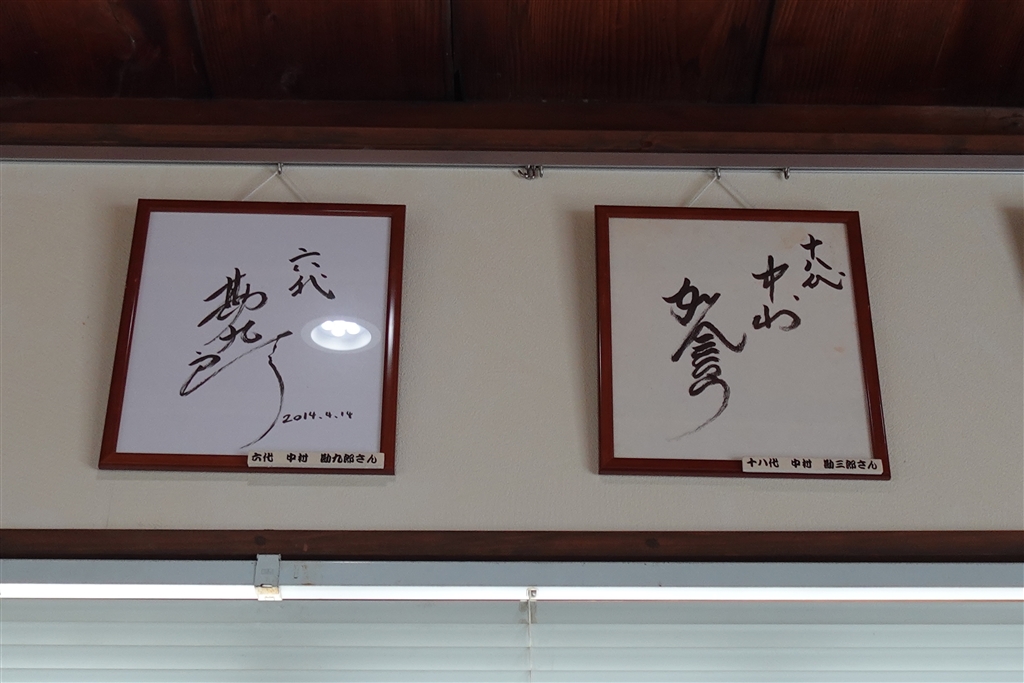 六代
勘九郎
2014.4.14
六代 中村 勘九郎さん
十八代
中村
十八代 中村 勘三郎さん